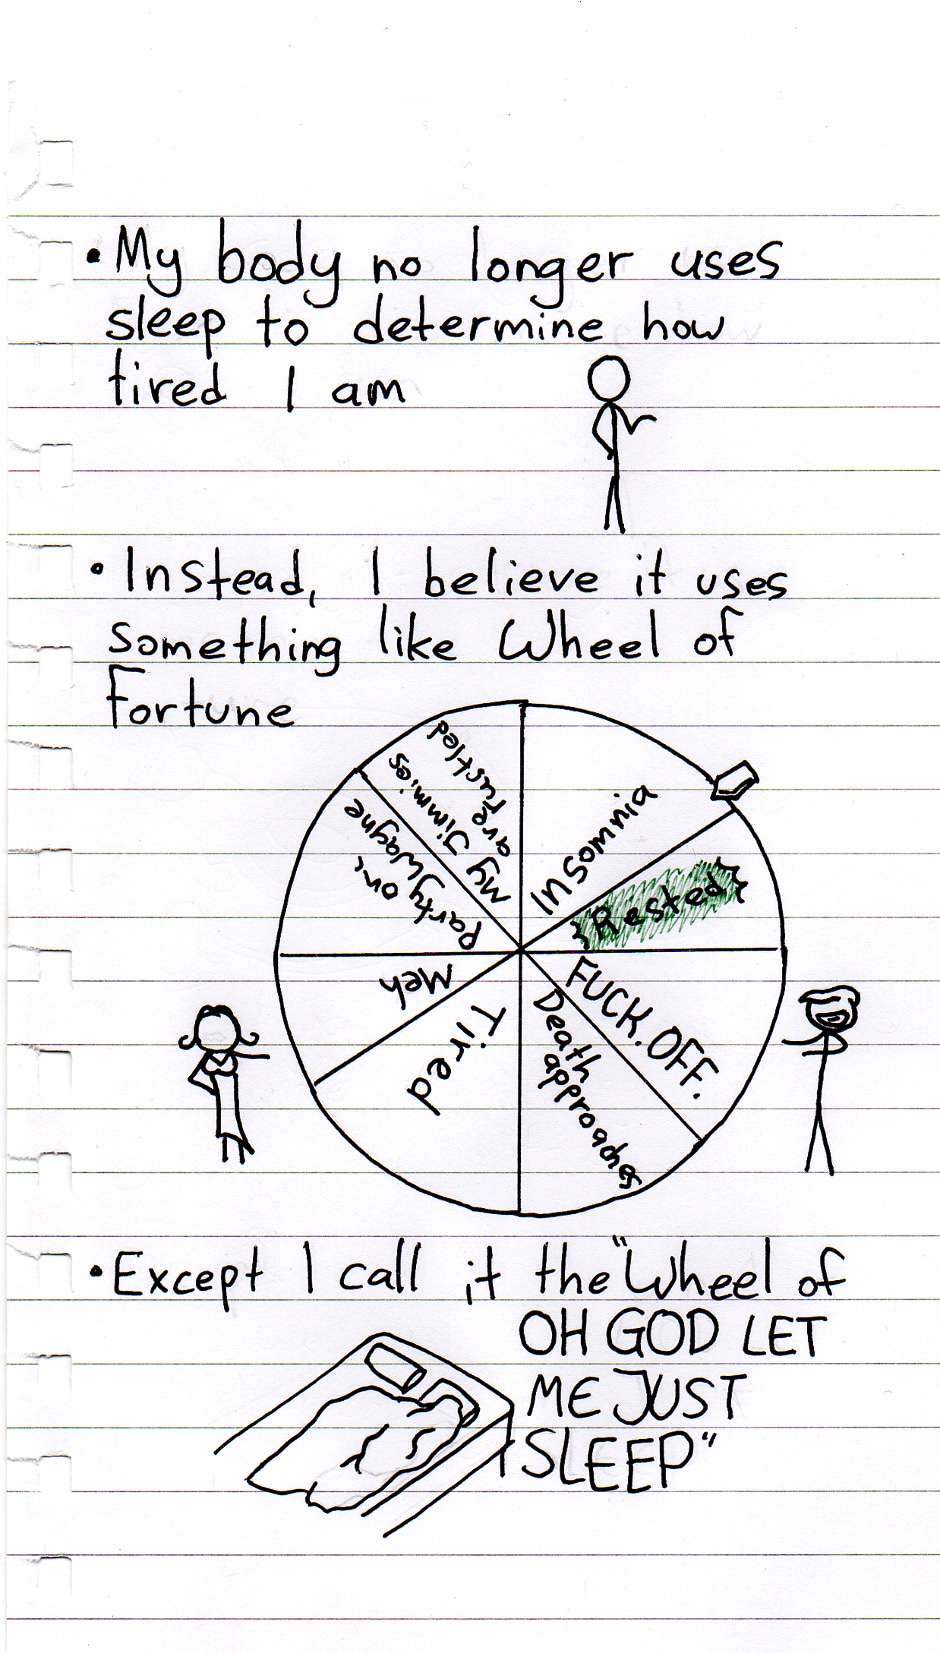 • My body no longer uses
sleep to determine how
tired I am
• Instead, I believe it uses
something like Wheel of
Fortune
Insomnia
Rested
FUCK. OFF.
Death
approaches
Tired
Meh
Party on,
Wayne
My Jimmies
are rustled
• Except I call it the "Wheel of
OH GOD LET
ME JUST
SLEEP"